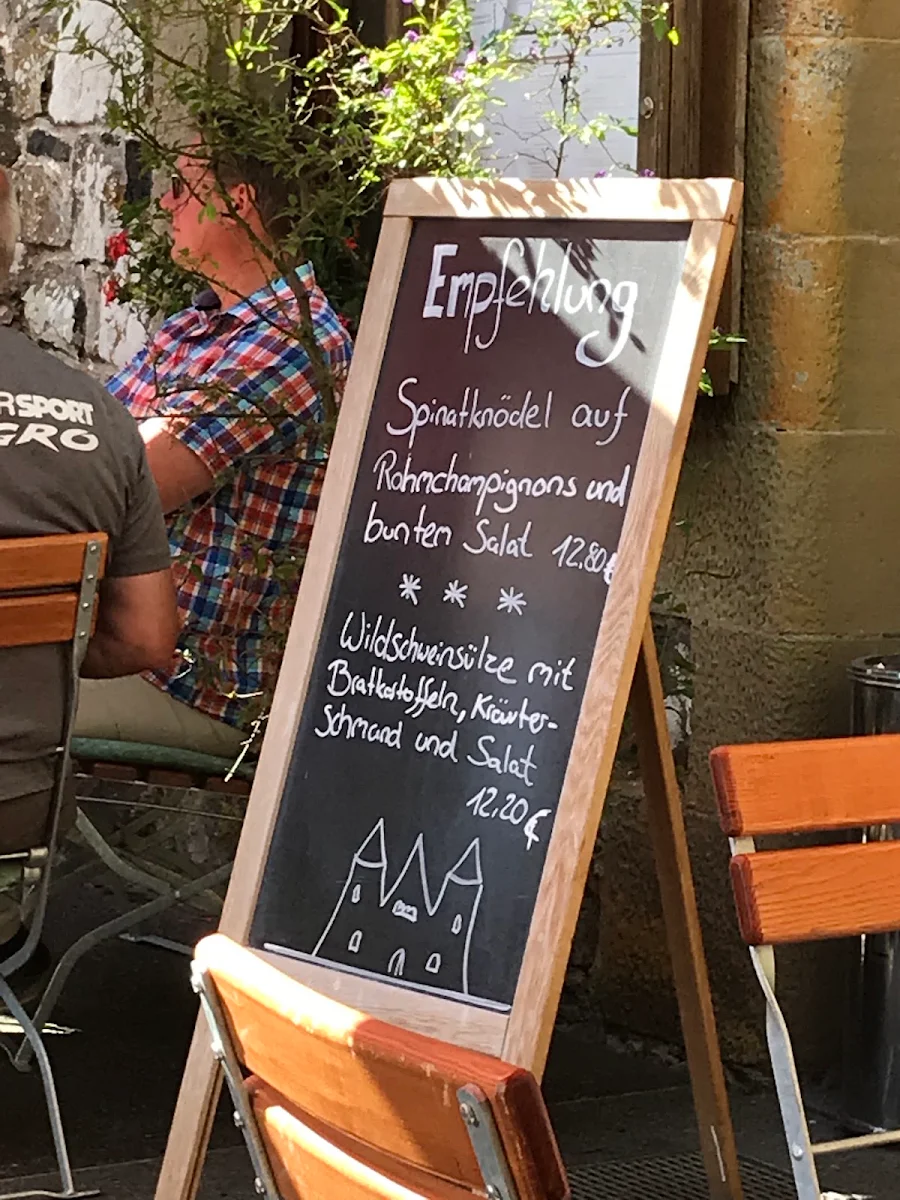 RSPORT
GRO
Empfehlung
Spinatknödel auf
Rahmchampignons und
bunten Salat 12,80€
* * *
Wildschweinsülze mit
Bratkartoffeln, Kräuter-
Schmand und Salat
12,20 €